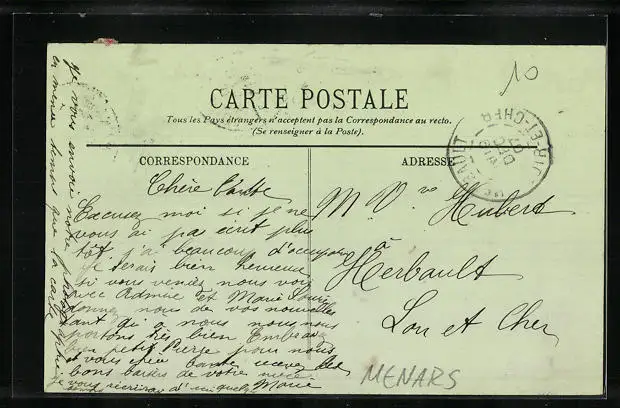 10
CARTE POSTALE
Tous les Pays étrangers n'acceptent pas la Correspondance au recto.
(Se renseigner à la Poste).
CORRESPONDANCE
ADRESSE
Chère tante
Excusez moi si je ne
vous ai pas écrit plus
tôt j'ai beaucoup d'occupation
je serais bien heureuse
si vous veniez nous voir
avec et Marie Louise
donnez nous de vos nouvelles
tant qu'a nous nous nous
portons très bien Embrassez
bien petit Pierre pour nous
et vous chère tante recevez les
bons baisers de votre nièce
Marie
je vous écrirai d'ici quelque
je vous envoi notre photographie
en même temps que la carte
M. Vve Hubert
à
Herbault
Loir et Cher
HERBAULT
LOIR-ET-CHER
DEC
07
MENARS